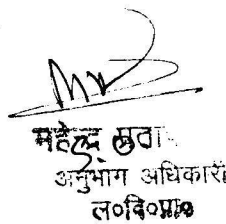 महेन्द्र
अनुभाग अधिकारी
ल०वि०प्रा०